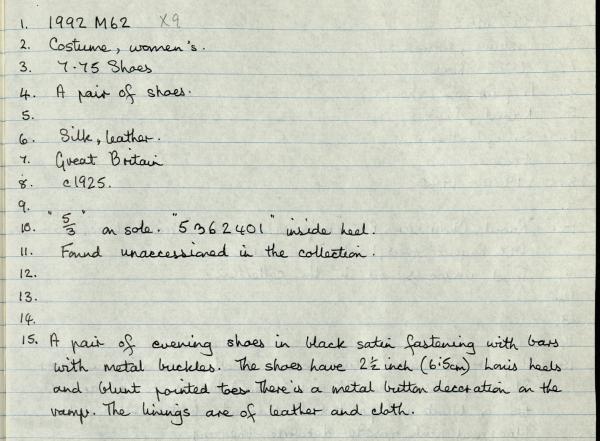 1. 1992 M62 X9
2. Costume, women's.
3. 7.75 Shoes
4. A pair of shoes.
5.
6. Silk, leather.
7. Great Britain
8. c1925.
9.
10. "5/3" on sole. "5362401" inside heel.
11. Found unaccessioned in the collection.
12.
13.
14.
15. A pair of evening shoes in black satin fastening with bars
with metal buckles. The shoes have 2½ inch (6.5cm) Louis heels
and blunt pointed toes. There is a metal button decoration on the
vamp. The linings are of leather and cloth.